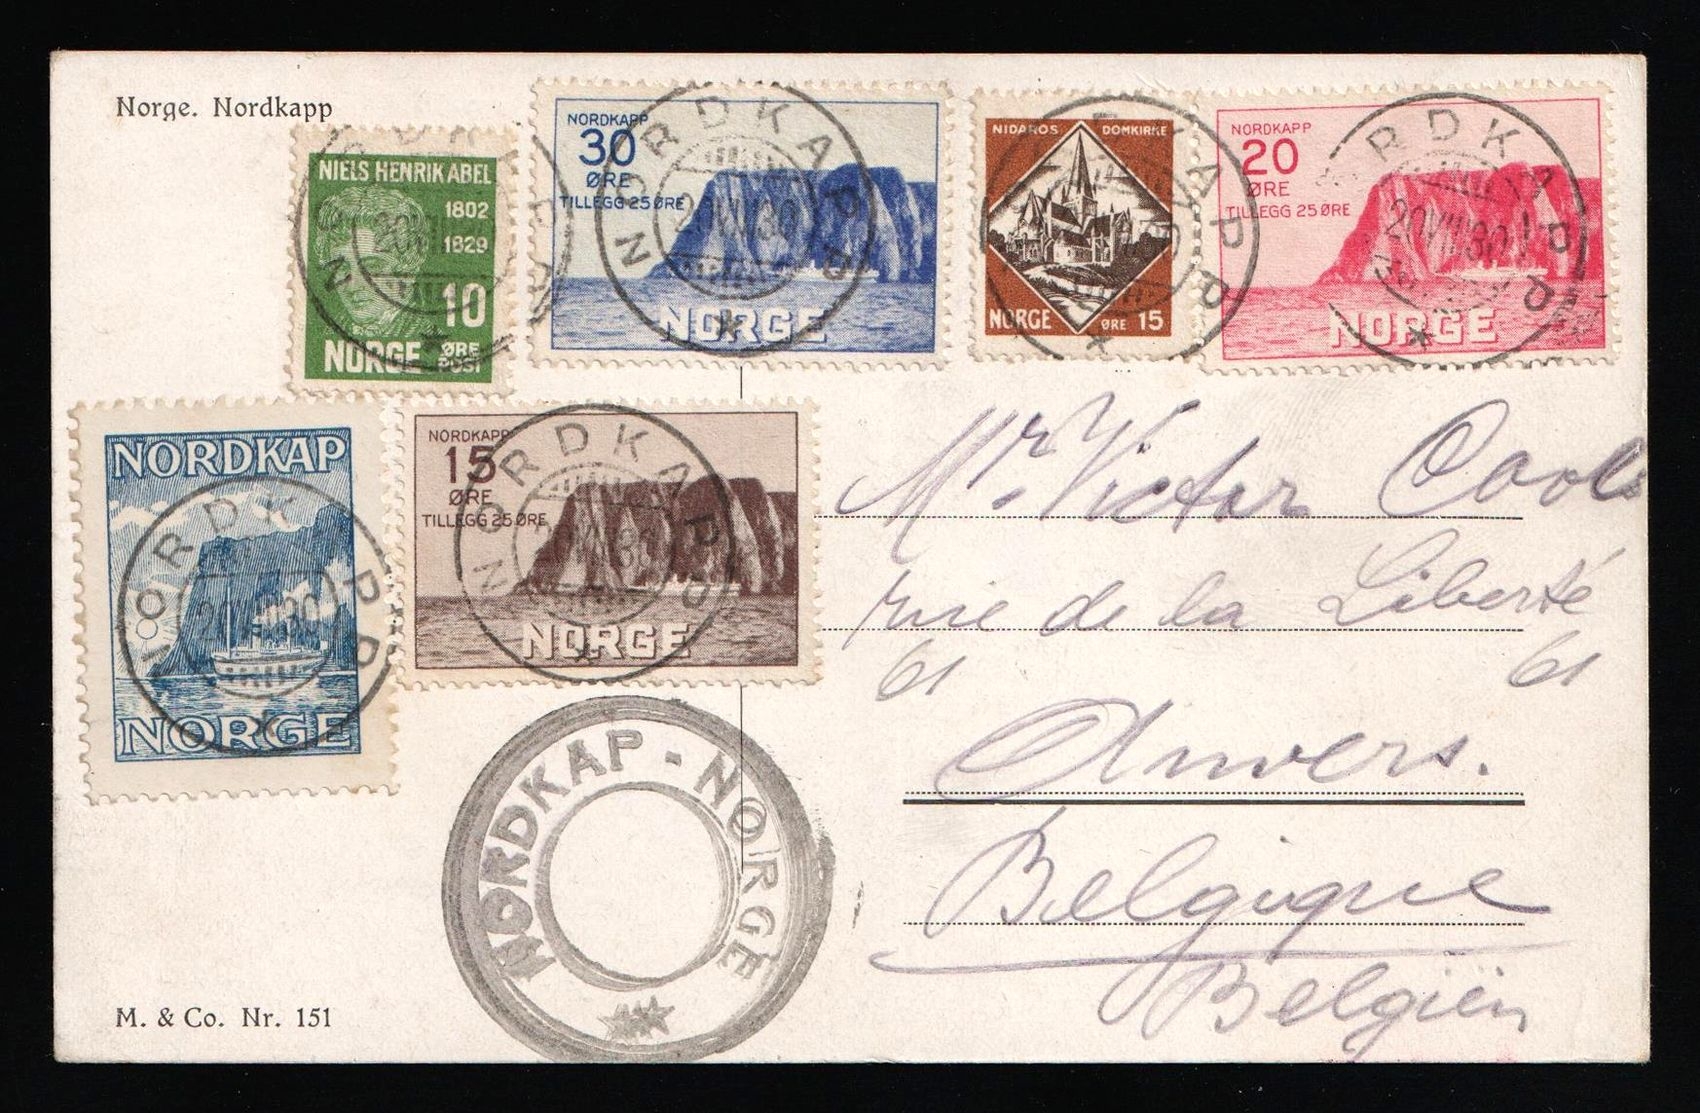 Norge. Nordkapp
NIELS HENRIK ABEL
1802
1829
10
NORGE ØRE
POST
NORDKAPP
30
ØRE
TILLEGG 25 ØRE
NORGE
NORDKAPP
20 VII 30
NIDAROS DOMKIRKE
NORGE ØRE 15
NORDKAPP
20
ØRE
TILLEGG 25 ØRE
NORGE
NORDKAPP
20 VII 30
NORDKAP
NORGE
NORDKAPP
NORDKAPP
15
ØRE
TILLEGG 25 ØRE
NORGE
NORDKAPP
Mr. Victor Cools
rue de la Liberté
61 61
Anvers.
Belgique
Belgiën
NORDKAP - NORGE
M. & Co. Nr. 151